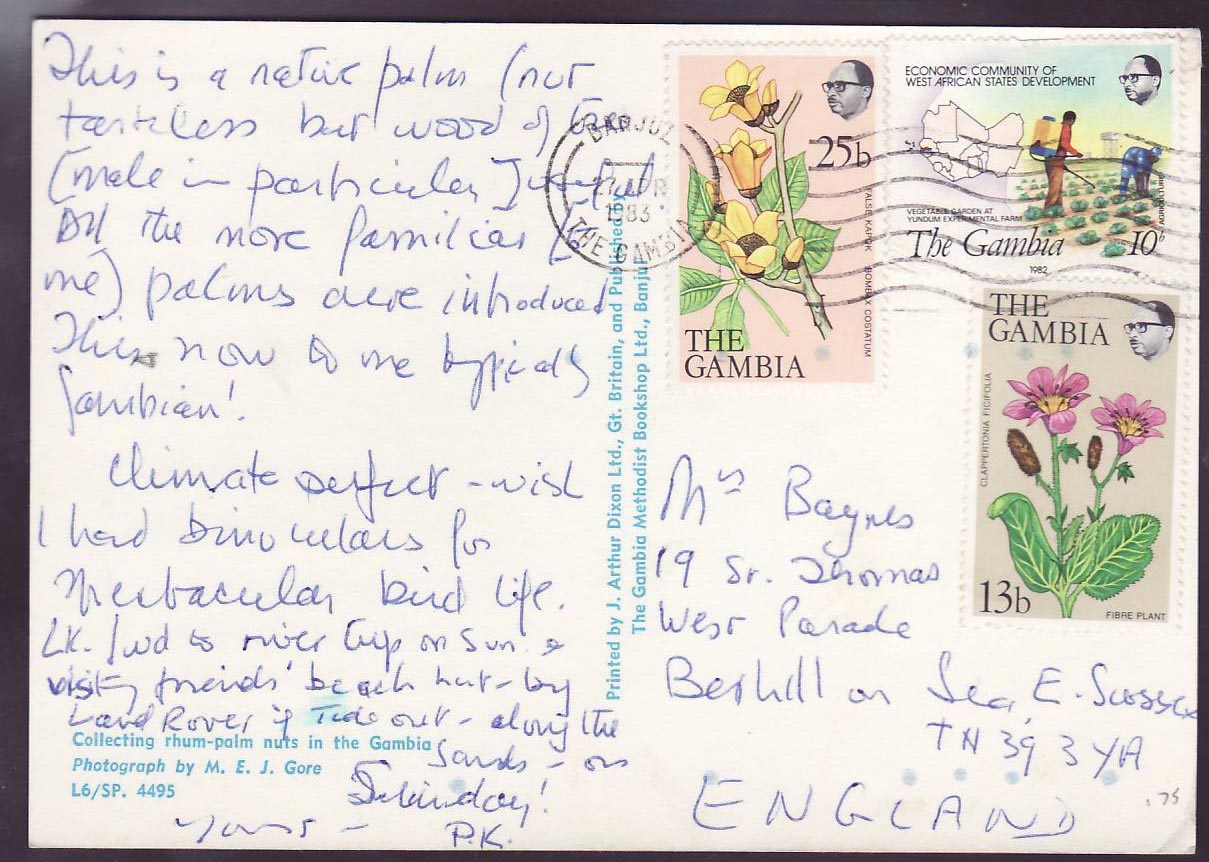 This is a native palm (nut
tasteless but wood of
(male in particular) useful.
All the more familiar (to
me) palms are introduced
This now to me typically
Gambian!
Climate perfect - wish
I had binoculars for
spectacular bird life.
Lk. fwd to river trip on Sun. &
visiting friends' beach hut - by
Land Rover if Tide out - along the
Sands - on
Saturday!
Yours -
P.K.
Collecting rhum-palm nuts in the Gambia
Photograph by M. E. J. Gore
L6/SP. 4495
Printed by J. Arthur Dixon Ltd., Gt. Britain, and Published by
The Gambia Methodist Bookshop Ltd., Banjul
BANJUL
1983
THE GAMBIA
25b
FALSE KAPOK BOMBAX COSTATUM
THE
GAMBIA
ECONOMIC COMMUNITY OF
WEST AFRICAN STATES DEVELOPMENT
VEGETABLE GARDEN AT
YUNDUM EXPERIMENTAL FARM
AGRICULTURE
The Gambia 10b
1982
THE
GAMBIA
CLAPPERTONIA FICIFOLIA
13b
FIBRE PLANT
Mrs Baynes
19 St. Thomas
West Parade
Bexhill on Sea, E. Sussex
TN39 3YA
ENGLAND
.75